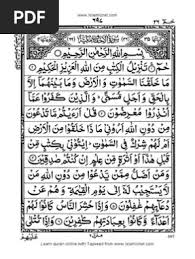 www.islamicnet.com
PDF
٦٩٧
بِسْمِ اللّٰهِ الرَّحْمٰنِ الرَّحِيْمِ
حٰمٓ تَنْزِيْلُ الْكِتٰبِ مِنَ اللّٰهِ الْعَزِيْزِ الْحَكِيْمِ
مَا خَلَقْنَا السَّمٰوٰتِ وَالْاَرْضَ وَمَا بَيْنَهُمَآ اِلَّا
بِالْحَقِّ وَاَجَلٍ مُّسَمًّى وَالَّذِيْنَ كَفَرُوْا عَمَّآ
اُنْذِرُوْا مُعْرِضُوْنَ قُلْ اَرَءَيْتُمْ مَّا تَدْعُوْنَ مِنْ
دُوْنِ اللّٰهِ اَرُوْنِيْ مَاذَا خَلَقُوْا مِنَ الْاَرْضِ
اَمْ لَهُمْ شِرْكٌ فِي السَّمٰوٰتِ
مِّنْ عِلْمٍ اِنْ كُنْتُمْ صٰدِقِيْنَ
وَمَنْ اَضَلُّ مِمَّنْ يَّدْعُوْا مِنْ دُوْنِ اللّٰهِ مَنْ
لَّا يَسْتَجِيْبُ لَهٗٓ اِلٰى يَوْمِ الْقِيٰمَةِ وَهُمْ عَنْ
دُعَآئِهِمْ غٰفِلُوْنَ وَاِذَا حُشِرَ النَّاسُ كَانُوْا لَهُمْ
اَعْدَآءً وَّكَانُوْا بِعِبَادَتِهِمْ كٰفِرِيْنَ وَاِذَا تُتْلٰى
Learn quran online with Tajweed from www.islamicnet.com